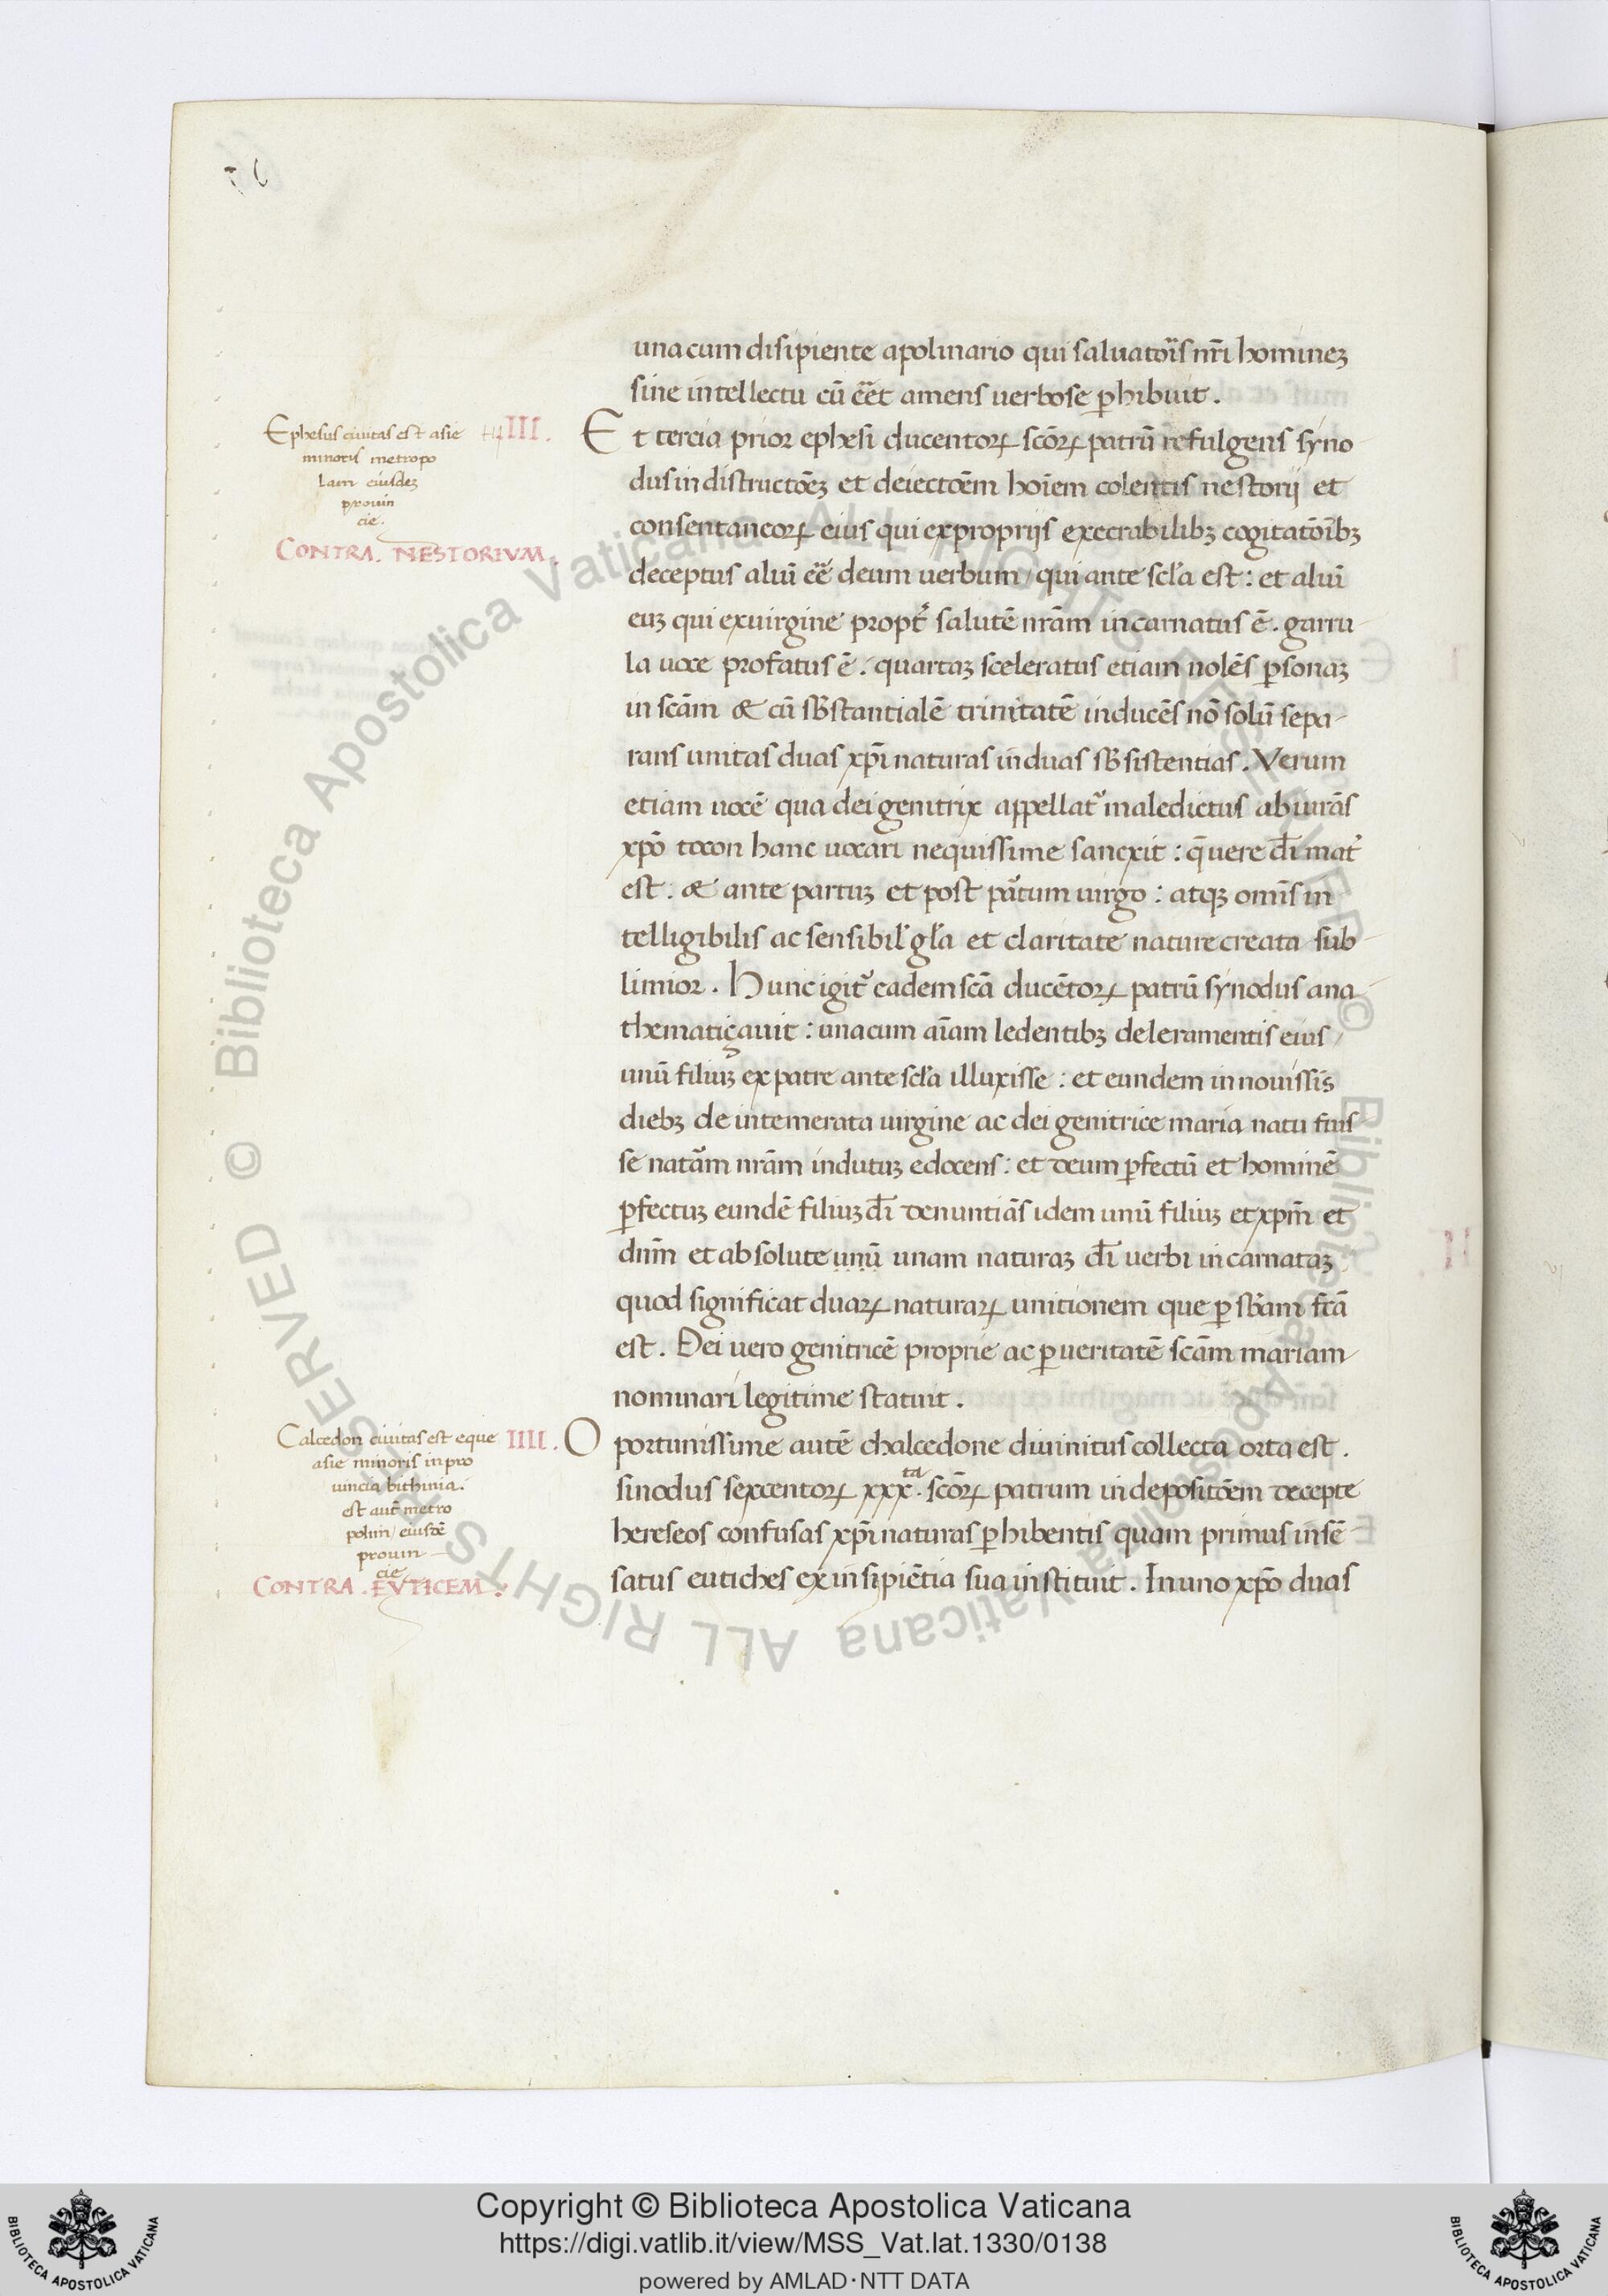 una cum disipiente apolinario qui saluatoīs nr̄i hominēꝫ
sine intellectu cū eēt amens uerbose ꝑhibuit.
Ephesus ciuitas est asie
minoris metropo
lam eiusdeꝫ
prouin
cie.
III.
CONTRA. NESTORIVM.
Et tercia prior ephesi ducentoꝝ scōꝝ patrū refulgens syno
dus in distructōeꝫ et deiectōem hoīem colentis nestorij et
consentaneoꝝ eius qui ex proprijs execrabilibꝫ cogitatōibꝫ
deceptus aliū eē deum uerbum / qui ante scl̄a est: et aliū
euꝫ qui ex uirgine propt̄ salutē nrām incarnatus ē. garru
la uoce profatus ē. quartaꝫ sceleratus etiam nolēs ꝑsonaꝫ
in scām & cū sb̄stantialē trinitatē inducēs nō solū sepa
rans unitas duas xp̄i naturas in duas sb̄sistentias. Verum
etiam uocē qua dei genitrix appellat᷑ maledictus abiurās
xp̄o tocon hanc uocari nequissime sancxit: q̄ uere dī mat᷑
est: & ante partuꝫ et post ꝑtum uirgo: atqꝫ omīs in
telligibilis ac sensibil' gl̄a et claritate nature creata sub
limior. Hunc igit᷑ eadem scā ducētoꝝ patrū synodus ana
thematiçauit: una cum aīam ledentibꝫ deleramentis eius /
unū filiuꝫ ex patre ante scl̄a illuxisse: et eundem in nouissīs
diebꝫ de intemerata uirgine ac dei genitrice maria natu fuis
se natām nrām indutuꝫ edocens: et deum ꝑfectū et hominē
ꝑfectuꝫ eundē filiuꝫ dī denuntiās idem unū filiuꝫ et xp̄m et
dn̄m et absolute unū unam naturaꝫ dī uerbi incarnataꝫ
quod significat duaꝝ naturaꝝ unitionem que ꝑ sb̄am fcā
est. Dei uero genitricē proprie ac ꝑ ueritatē scām mariam
nominari legitime statuit.
Calcedon ciuitas est eque
asie minoris in pro
uincia bithinia.
est aut̄ metro
polim / eiusdē
prouin
cie
IIII.
CONTRA. EVTICEM.
Oportunissime autē chalcedone diuinitus collecta orta est.
sinodus sexcentoꝝ xxx.ta scōꝝ patrum in depositōem decepte
hereseos confusas xp̄i naturas ꝑhibentis quam primus insē
satus eutiches ex insipiētia sua instituit. In uno xp̄o duas
© Biblioteca Apostolica Vaticana ALL RIGHTS RESERVED
© Biblioteca Apostolica Vaticana ALL RIGHTS RESERVED
Copyright © Biblioteca Apostolica Vaticana
https://digi.vatlib.it/view/MSS_Vat.lat.1330/0138
powered by AMLAD·NTT DATA
BIBLIOTECA APOSTOLICA VATICANA
BIBLIOTECA APOSTOLICA VATICANA